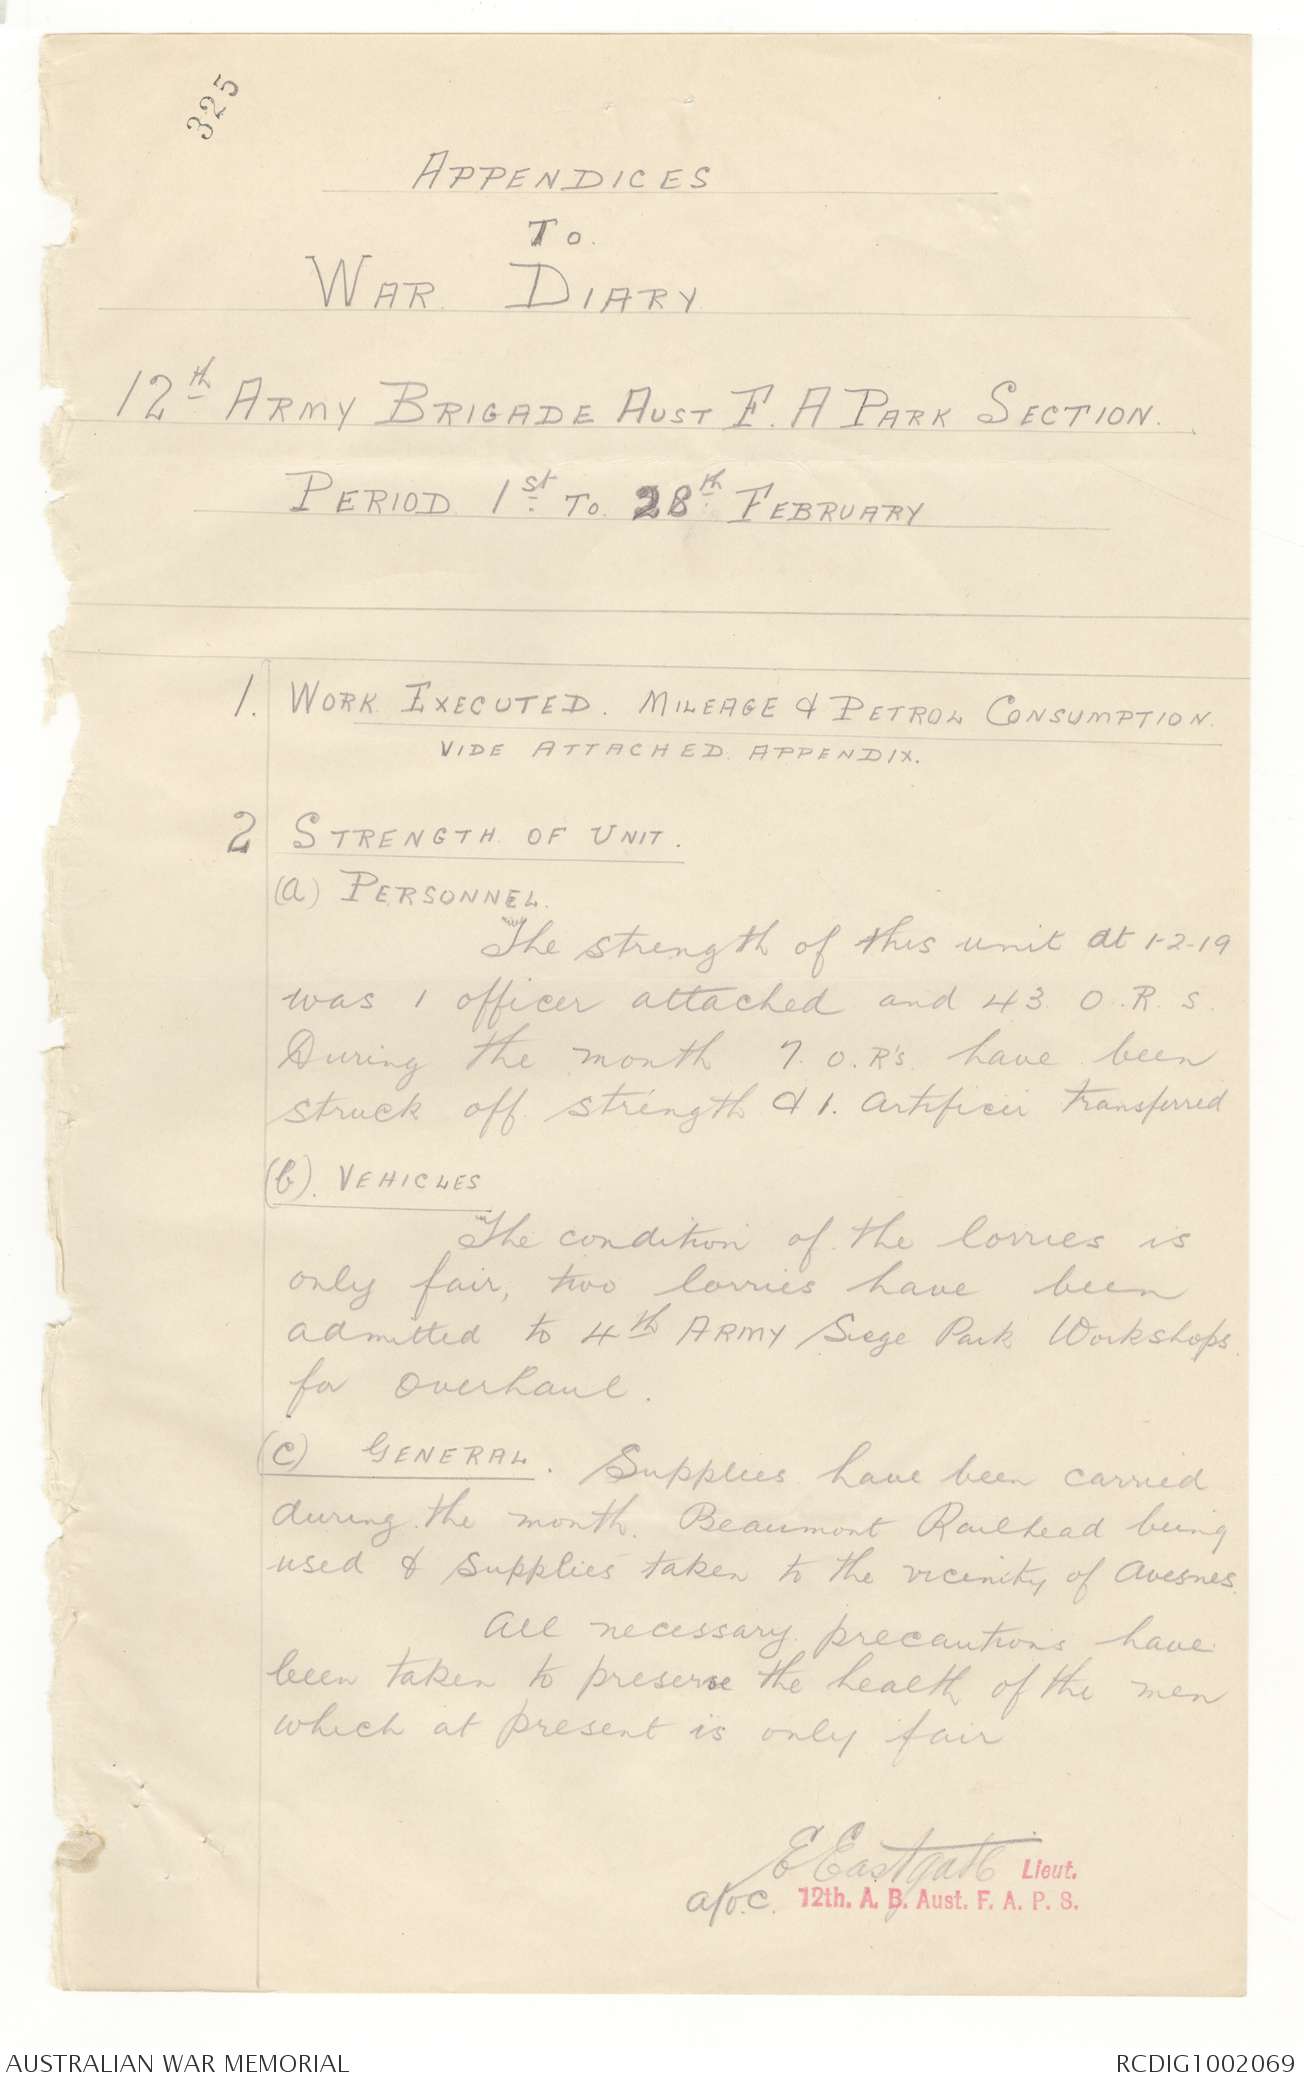 325
APPENDICES
TO.
WAR DIARY
12th ARMY BRIGADE AUST F. A PARK SECTION.
PERIOD 1st TO 28th FEBRUARY
1. WORK EXECUTED. MILEAGE & PETROL CONSUMPTION.
VIDE ATTACHED APPENDIX.
2 STRENGTH OF UNIT.
(a) PERSONNEL.
The strength of this unit at 1-2-19
was 1 officer attached and 43 O.R.s.
During the month 7. O.R's. have been
struck off strength & 1. Artificer transferred
(b). VEHICLES
The condition of the lorries is
only fair, two lorries have been
admitted to 4th ARMY Siege Park Workshops.
for overhaul.
(c) GENERAL. Supplies have been carried
during the month. Beaumont Railhead being
used & supplies taken to the vicinity of Avesnes.
All necessary precautions have
been taken to preserve the health of the men
which at present is only fair
E Eastgate Lieut.
a/o.c. 12th. A. B. Aust. F. A. P. S.
AUSTRALIAN WAR MEMORIAL
RCDIG1002069